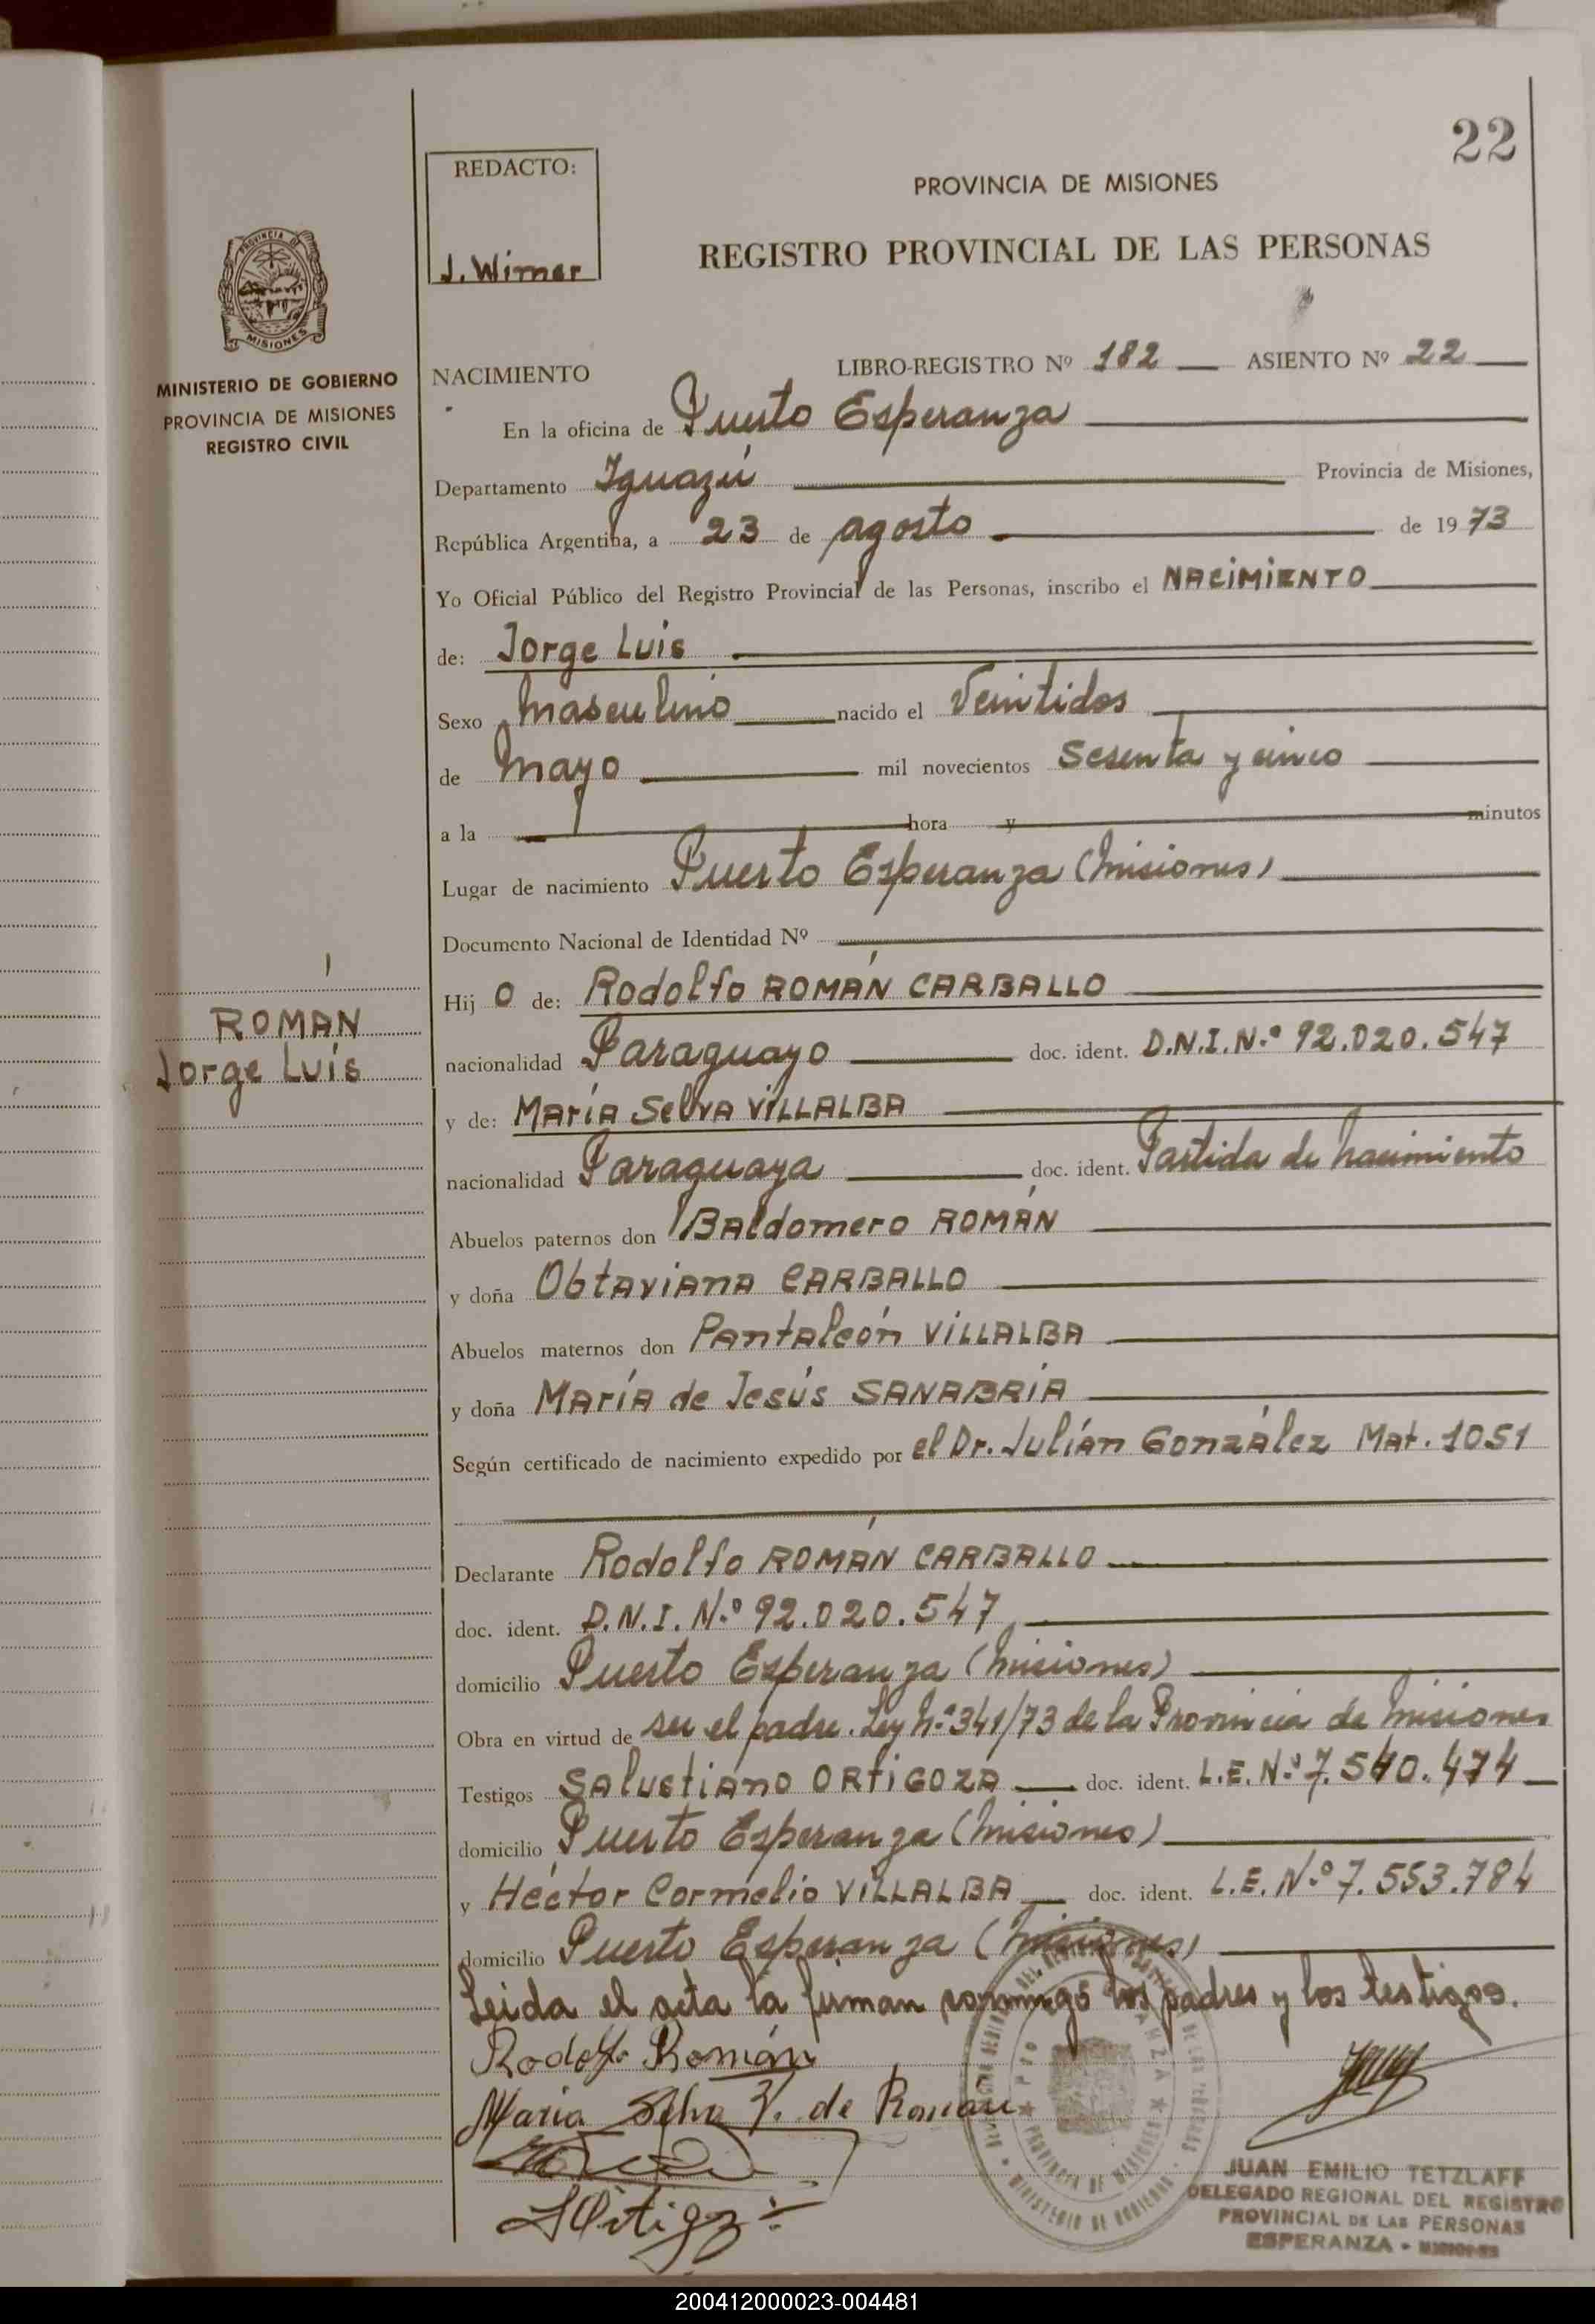 22
REDACTO:
J. Wimer
PROVINCIA DE MISIONES
REGISTRO PROVINCIAL DE LAS PERSONAS
PROVINCIA DE
MISIONES
MINISTERIO DE GOBIERNO
PROVINCIA DE MISIONES
REGISTRO CIVIL
NACIMIENTO LIBRO-REGISTRO Nº 182 ASIENTO Nº 22
En la oficina de Puerto Esperanza
Departamento Iguazú Provincia de Misiones,
República Argentina, a 23 de agosto de 1973
Yo Oficial Público del Registro Provincial de las Personas, inscribo el NACIMIENTO
de: Jorge Luis
Sexo Masculino nacido el Veintidos
de Mayo mil novecientos Sesenta y cinco
a la hora y minutos
Lugar de nacimiento Puerto Esperanza (Misiones)
Documento Nacional de Identidad Nº
Hijo de: Rodolfo ROMÁN CARBALLO
ROMÁN
Jorge Luis
nacionalidad Paraguayo doc. ident. D.N.I. N.º 92.020.547
y de: María Selva VILLALBA
nacionalidad Paraguaya doc. ident. Partida de Nacimiento
Abuelos paternos don Baldomero ROMÁN
y doña Obtaviana CARBALLO
Abuelos maternos don Pantaleón VILLALBA
y doña María de Jesús SANABRIA
Según certificado de nacimiento expedido por el Dr. Julián González Mat. 1051
Declarante Rodolfo ROMÁN CARBALLO
doc. ident. D.N.I. N.º 92.020.547
domicilio Puerto Esperanza (Misiones)
Obra en virtud de ser el padre. Ley N.º 341/73 de la Provincia de Misiones
Testigos Salustiano ORTIGOZA doc. ident. L.E. N.º 7.540.474
domicilio Puerto Esperanza (Misiones)
y Héctor Cornelio VILLALBA doc. ident. L.E. N.º 7.553.784
domicilio Puerto Esperanza (Misiones)
Leída el acta la firman conmigo los padres y los testigos.
Rodolfo Román
Maria Selva V. de Román
JUAN EMILIO TETZLAFF
DELEGADO REGIONAL DEL REGISTRO
PROVINCIAL DE LAS PERSONAS
ESPERANZA - MISIONES
200412000023-004481